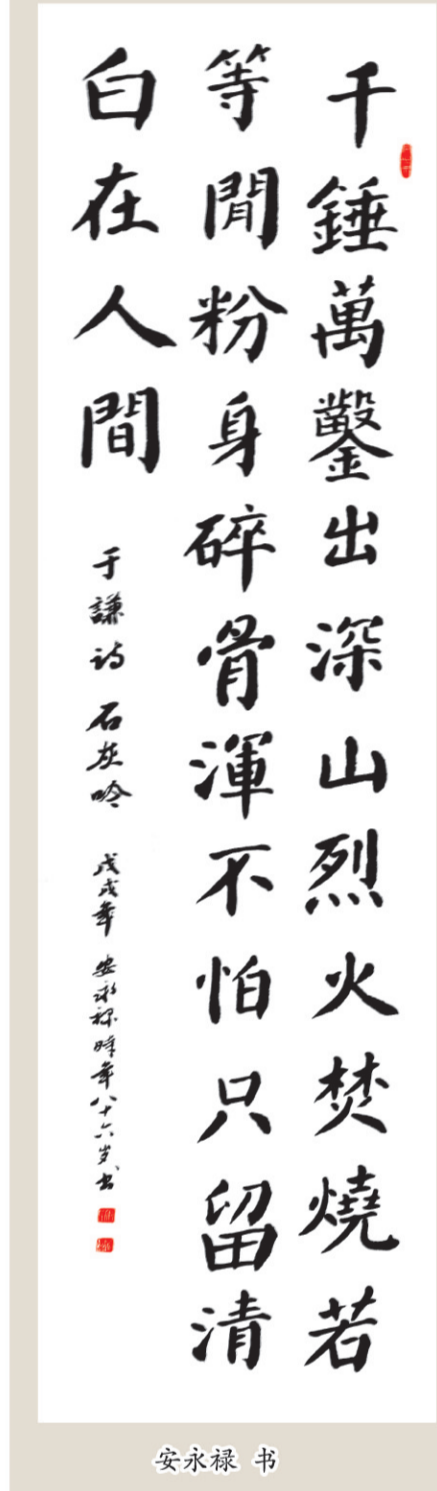 千錘萬鑿出深山烈火焚燒若
等閒粉身碎骨渾不怕只留清
白在人間
于謙诗 石灰吟 戊戌年 安永禄時年八十六岁书
安永禄 书